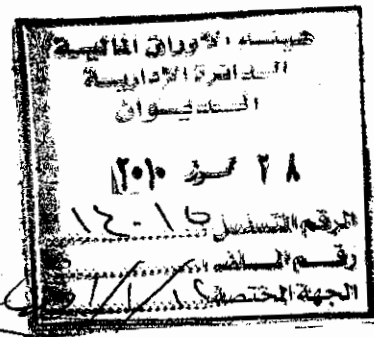 هيئة الأوراق المالية
الدائرة الإدارية
الديوان
٢٨ تموز ٢٠١٠
الرقم المتسلسل
رقم الملف
الجهة المختصة